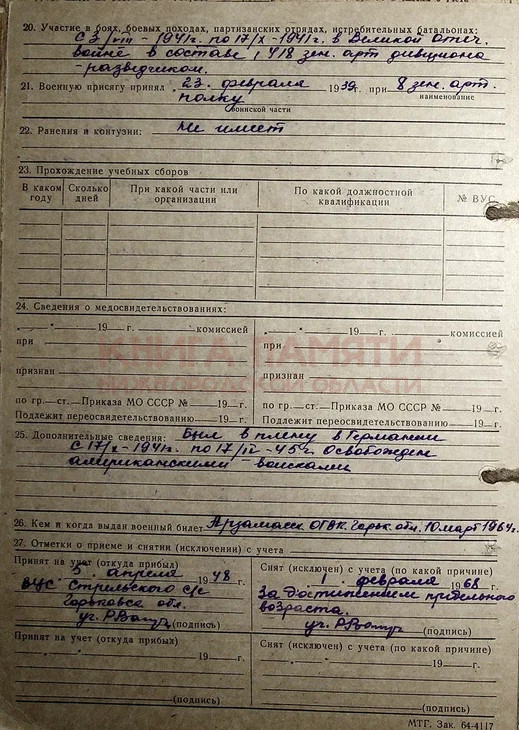 20. Участие в боях, боевых походах, партизанских отрядах, истребительных батальонах:
С 3/VIII - 1941г. по 17/X - 1941г. в Великой Отеч.
войне в составе, 418 зен. арт дивизиона
- разведчиком.
21. Военную присягу принял 23 февраля 1939 г. при 8 зен. арт.
наименование
полку
воинской части
22. Ранения и контузии: Не имеет
23. Прохождение учебных сборов
В каком году
Сколько дней
При какой части или организации
По какой должностной квалификации
№ ВУС
24. Сведения о медосвидетельствованиях:
„ " 19 г. комиссией
при
признан
по гр. ст. Приказа МО СССР № 19 г.
Подлежит переосвидетельствованию 19 г.
„ " 19 г. комиссией
при
признан
по гр. ст. Приказа МО СССР № 19 г.
Подлежит переосвидетельствованию 19 г.
КНИГА ПАМЯТИ
ОБЛАСТИ
25. Дополнительные сведения: Был в плену в Германии
С 17/X - 1941г. по 17/IV - 45г. Освобожден
американскими войсками
26. Кем и когда выдан военный билет Арзамасск. ОГВК Горьк. обл. 10 март 1964г.
27. Отметки о приеме и снятии (исключении) с учета
Принят на учет (откуда прибыл)
5 апреля 1948 г.
ВУС Стрельского с/с
Горьковск. обл.
(подпись)
Снят (исключен) с учета (по какой причине)
1 февраля 1968 г.
За достижением предельного
возраста.
(подпись)
Принят на учет (откуда прибыл)
„ " 19 г.
(подпись)
Снят (исключен) с учета (по какой причине)
„ " 19 г.
(подпись)
МТГ. Зак. 64-4117